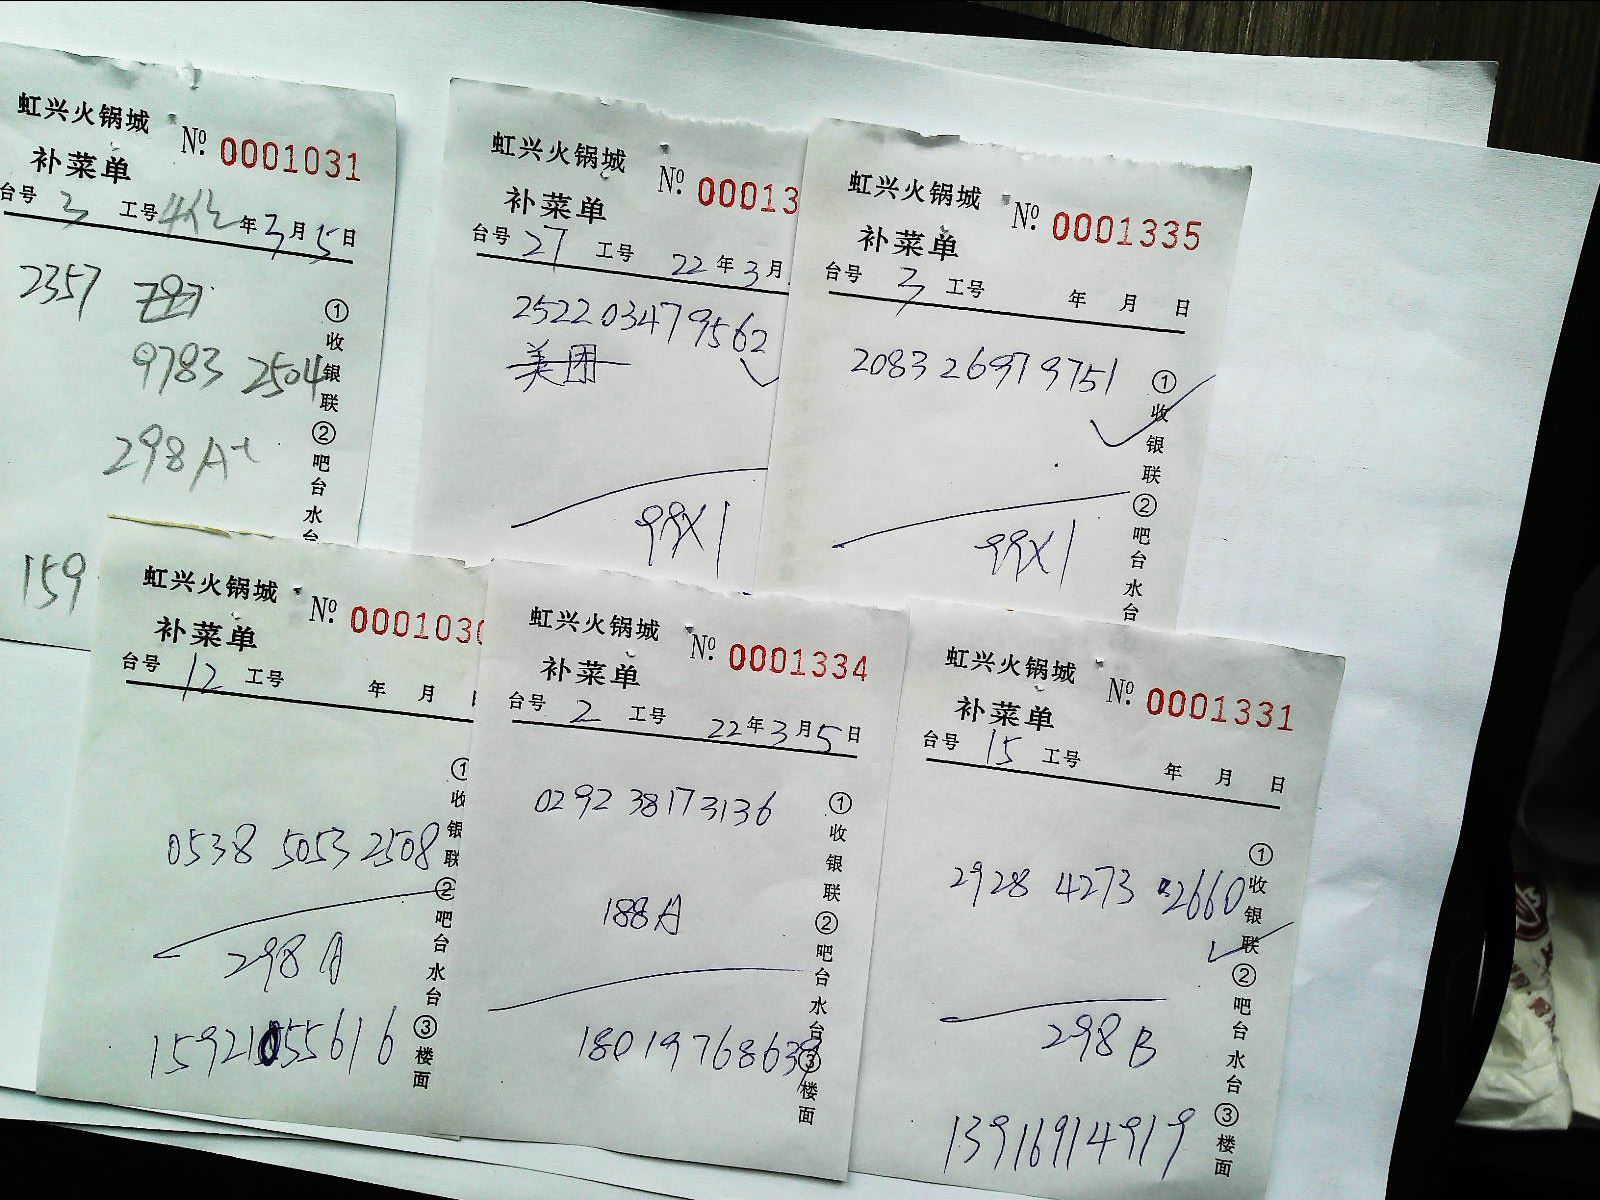 虹兴火锅城
No. 0001031
补菜单
台号 3 工号 年 3 月 5 日
2357
9783 2504
298A+
159
①收银联 ②吧台水台
虹兴火锅城
No. 00013
补菜单
台号 27 工号 22 年 3 月
2522 0347 9562
美团
99X1
虹兴火锅城
No. 0001335
补菜单
台号 3 工号 年 月 日
2083 2697 9751
99X1
①收银联 ②吧台水台
虹兴火锅城
No. 000103
补菜单
台号 12 工号 年 月
0538 5053 2508
298A
15921055616
①收银联 ②吧台水台 ③楼面
虹兴火锅城
No. 0001334
补菜单
台号 2 工号 22 年 3 月 5 日
0292 3817 3136
188A
18019768639
①收银联 ②吧台水台 ③楼面
虹兴火锅城
No. 0001331
补菜单
台号 15 工号 年 月 日
2928 4273 2660
298B
13916914919
①收银联 ②吧台水台 ③楼面